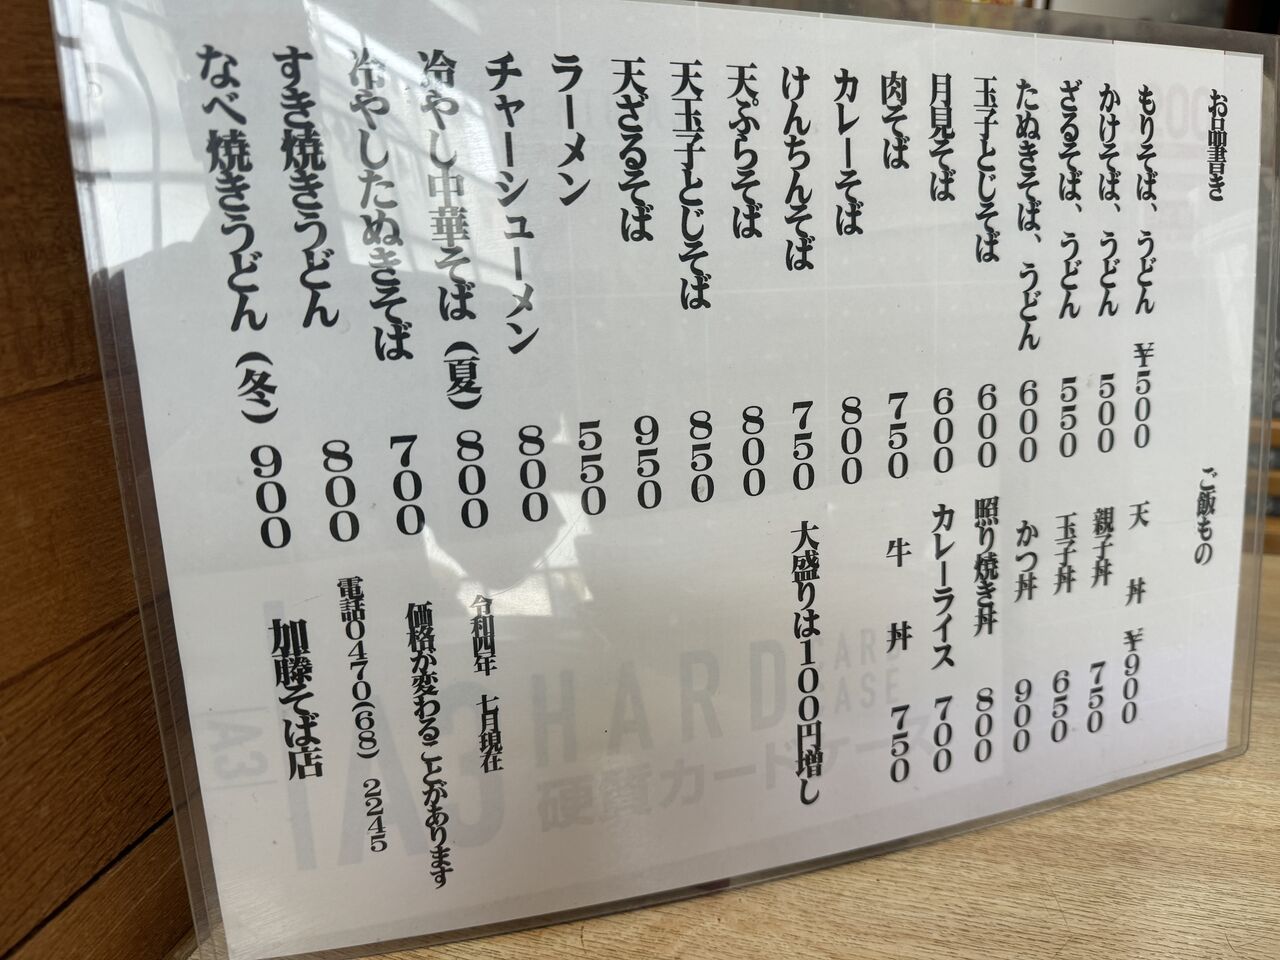 お品書き
もりそば、うどん ¥500
かけそば、うどん 500
ざるそば、うどん 550
たぬきそば、うどん 600
玉子とじそば 600
月見そば 600
肉そば 750
カレーそば 800
けんちんそば 750
天ぷらそば 800
天玉子とじそば 850
天ざるそば 950
ラーメン 550
チャーシューメン 800
冷やし中華そば(夏) 800
冷やしたぬきそば 700
すき焼きうどん 800
なべ焼きうどん(冬) 900
ご飯もの
天丼 ¥900
親子丼 750
玉子丼 650
かつ丼 900
照り焼き丼 800
カレーライス 700
牛丼 750
大盛りは100円増し
令和四年 七月現在
価格が変わることがあります
電話0470(68)2245
加藤そば店
A3 HARD CARD CASE
硬質カードケース
A3